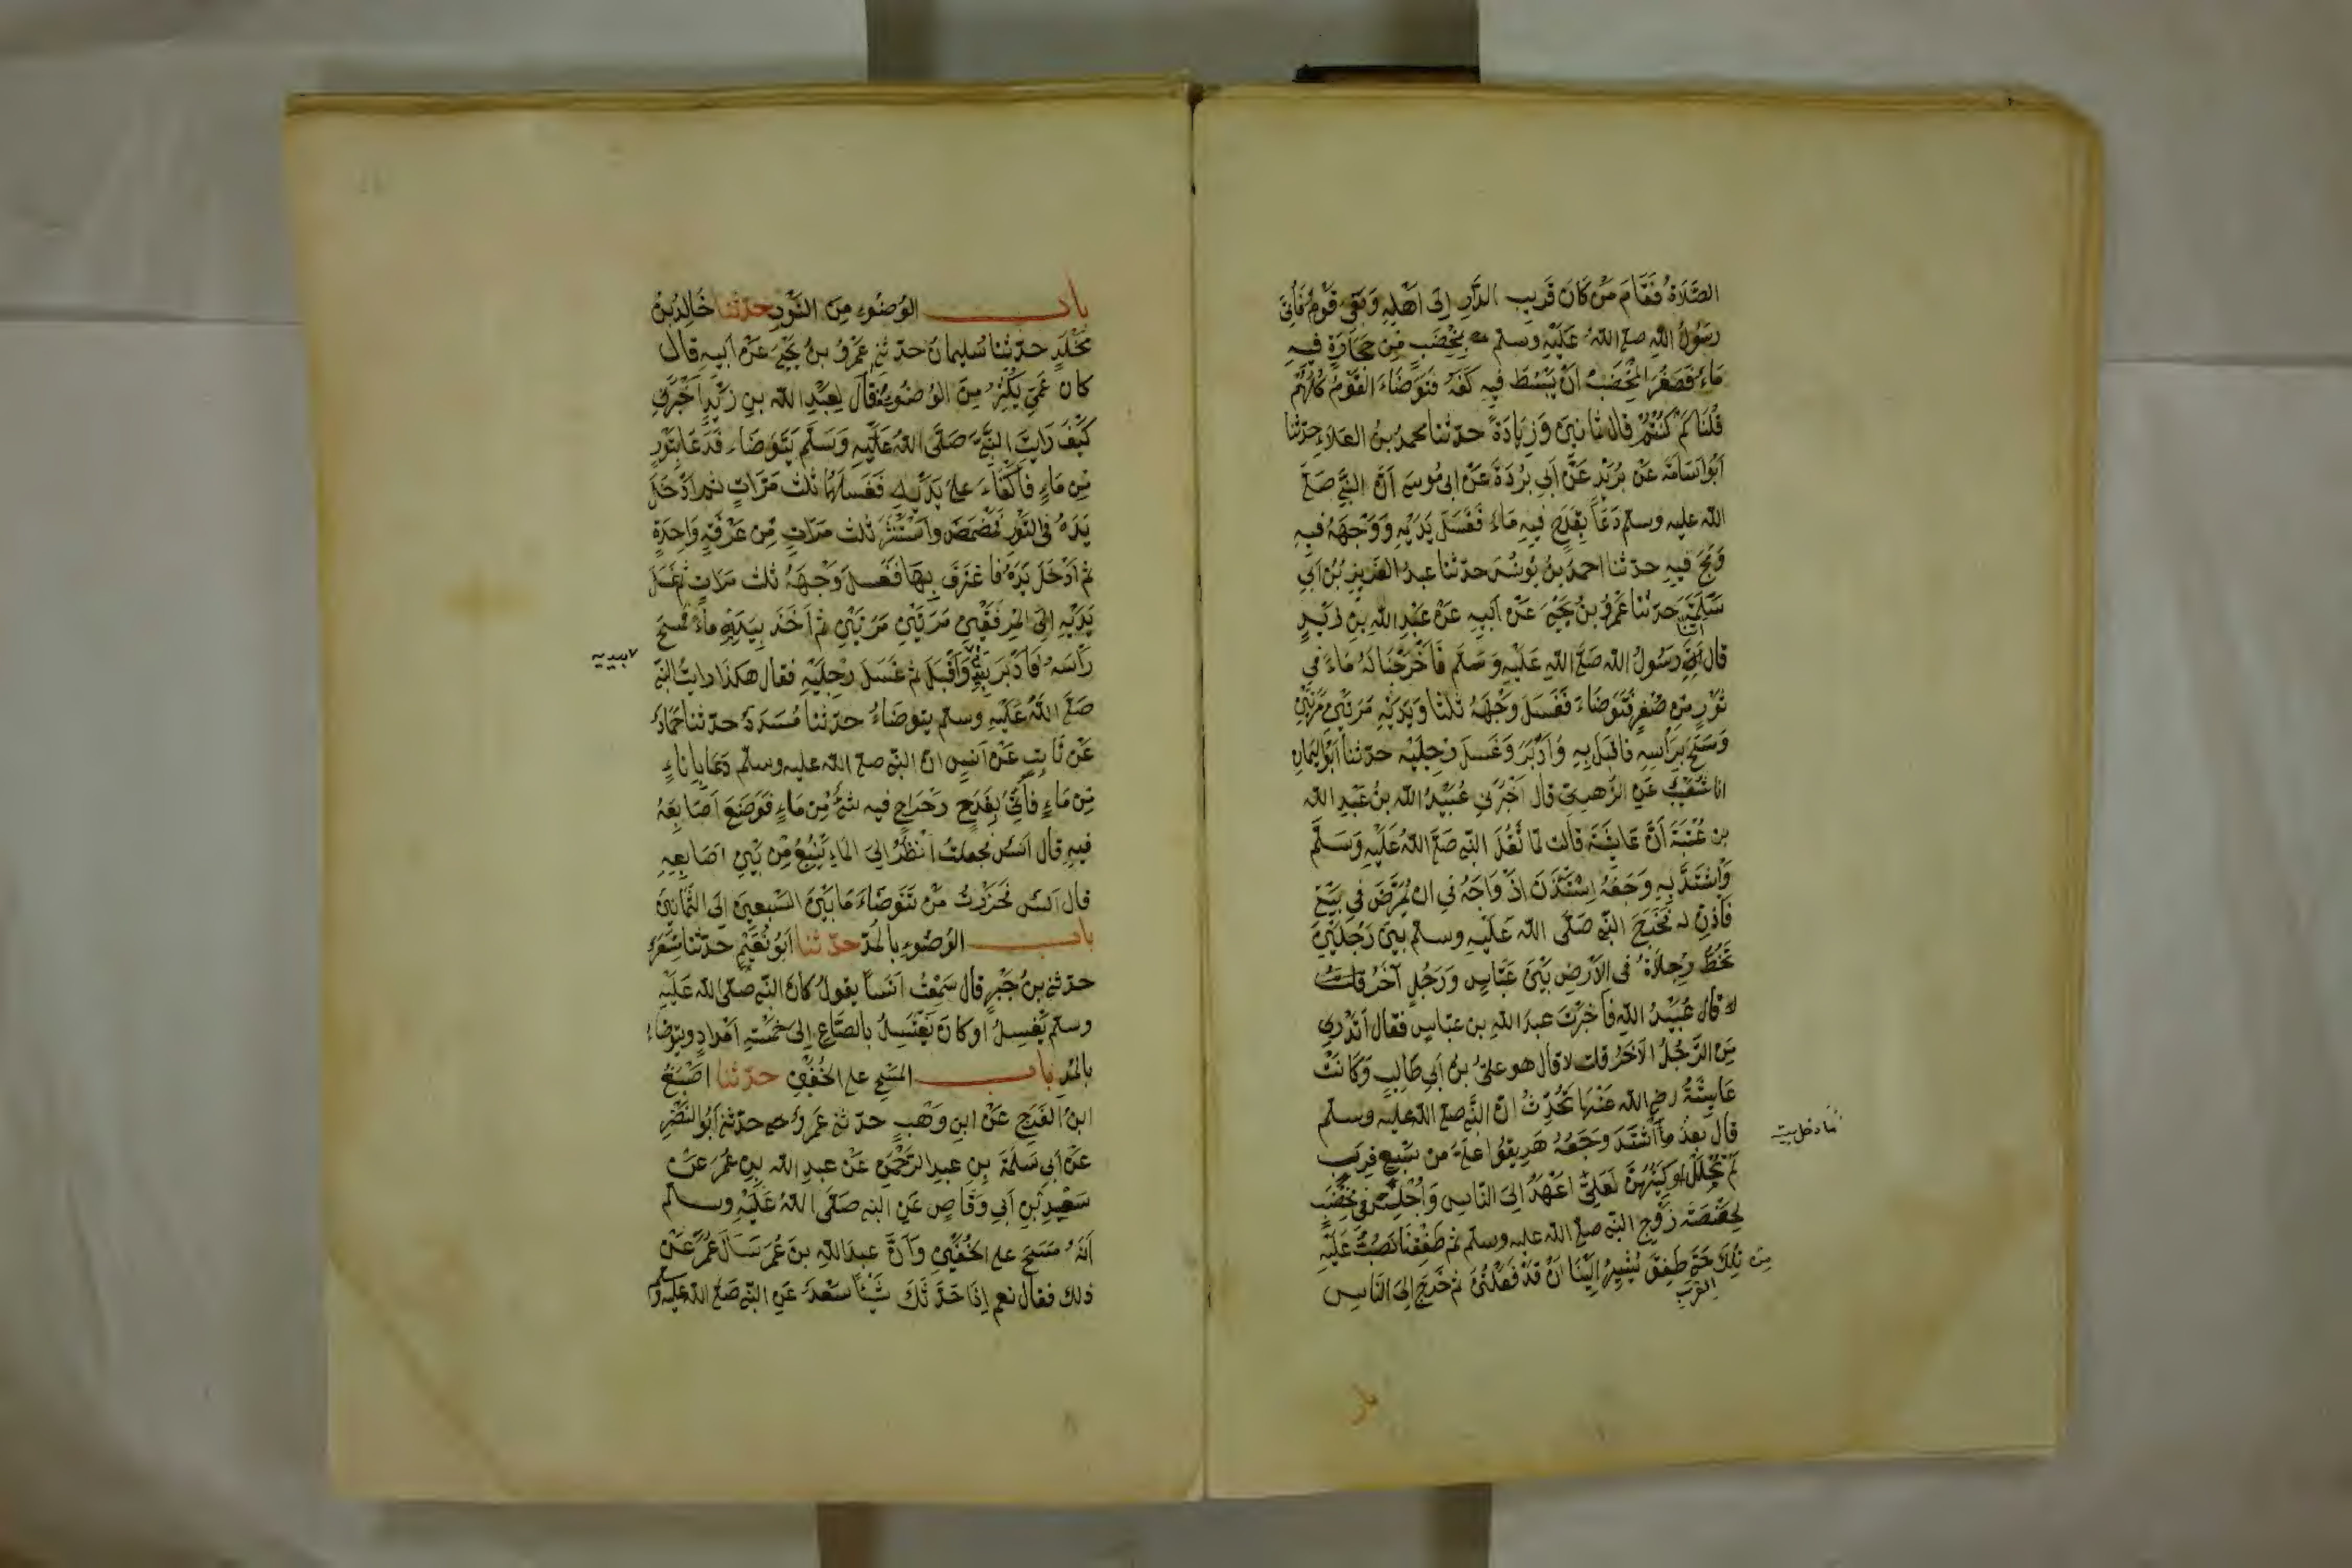 الصَّلَاةُ فَقَامَ مَنْ كَانَ قَرِيبَ الدَّارِ اِلَى اَهْلِهِ وَبَقِيَ قَوْمٌ فَأُتِيَ
رَسُولُ اللهِ صلى اللهُ عَلَيْهِ وَسلم بِمِخْضَبٍ مِنْ حِجَارَةٍ فِيهِ
مَاءٌ فَصَغُرَ الْمِخْضَبُ اَنْ يَبْسُطَ فِيهِ كَفَّهُ فَتَوَضَّاءَ الْقَوْمُ كُلُّهُمْ
قُلْنَا كَمْ كُنْتُمْ قال ثمَانِينَ وَزِيَادَةً حدثنا محمدُ بنُ العَلَاءِ حدثنا
اَبُو اُسَامَةَ عَنْ بُرَيْدٍ عَنْ أَبِي بُرْدَةَ عَنْ ابى مُوسَى اَنَّ النبيَّ صَلى
الله عليه وسلم دَعَا بِقَدَحٍ فِيهِ مَاءٌ فَغَسَلَ يَدَيْهِ وَوَجْهَهُ فِيهِ
وَمَجَّ فِيهِ حدثنا احمدُ بنُ يُونُسَ حدثنا عبدُ العَزِيزِ بْنُ اَبِي
سَلَمَةَ حدثنا عَمْرُو بنُ يَحْيَى عَنْ اَبِيهِ عَنْ عَبْدِ اللهِ بنِ زَيْدٍ
قال اَتَى رَسُولُ الله صَلى اللهِ عَلَيْهِ وَسَلم فَاَخْرَجْنَا لَهُ مَاءً فِي
اتانا
تَوْرٍ مِنْ صُفْرٍ فَتَوَضَّاءَ فَغَسَلَ وَجْهَهُ ثلثا وَيَدَيْهِ مَرَّتَيْنِ مَرَّتَيْنِ
وَمَسَحَ بِرَاْسِهِ فاقبَلَ بِهِ وَاَدْبَرَ وَغَسَلَ رِجْلَيْهِ حدثنا اَبُو الْيَمَانِ
انا شُعَيْبٌ عَنِ الزُّهْرِيّ قال اَخْبَرَنِي عُبَيْدُ الله بنُ عَبْدِ الله
بنِ عُتْبَةَ اَنَّ عَايِشَةَ قَالت لمّا ثَقُلَ النبي صَلى اللهُ عَلَيْهِ وَسَلَّمَ
وَاشْتَدَّ بِهِ وَجَعُهُ اِسْتَأْذَنَ اَزْوَاجَهُ فِي ان يُمَرَّضَ فِي بَيْتِي
فَأَذِنَّ له فَخَرَجَ النبي صَلَّى الله عَلَيْهِ وسلم بَيْنَ رَجُلَيْنِ
تَخُطُّ رِجْلَاهُ فى الاَرْضِ بَيْنَ عَبَّاسٍ وَرَجُلٍ آخَرَ
قال عُبَيْدُ اللهِ فَاَخْبَرْتُ عبدَ اللهِ بن عَبّاسٍ فقال اَتَدْرِي
مَنِ الرَّجُلُ الاَخَرُ قلت لا قال هو عليُّ بنُ اَبِي طَالِبٍ وَكَانَتْ
عَايِشَةُ رضى الله عَنْهَا تُحَدِّثُ انّ النَّبي صلى الله عليه وسلم
قال بعدُ ما اشْتَدَّ وَجَعُهُ هَرِيقُوا عَلَيَّ مِنْ سَبْعِ قِرَبٍ
ما دخل بيته
لَمْ تُحْلَلْ اَوْكِيَتُهُنَّ لَعَلِّي اَعْهَدُ اِلَى النَّاسِ وَاُجْلِسَ فِي مِخْضَبٍ
لِحَفْصَةَ زَوْجِ النبي صلى الله عليه وسلم ثم طَفِقْنَا نَصُبُّ عَلَيْهِ
مِن تِلْكَ حَتّى طَفِقَ يُشِيرُ اِلَيْنَا انْ قَدْ فَعَلْتُنَّ ثم خَرَجَ اِلَى النَّاسِ
القِرَبِ
باب
باب الوُضُوءِ مِنَ التَّوْرِ حدثنا خَالِدُ بنُ
مَخْلَدٍ حدّثنا سُليمانُ حدثني عَمْرُو بنُ يَحْيَى عَنْ اَبِيهِ قال
كانَ عَمِّي يُكْثِرُ مِنَ الوُضُوءِ فقال لِعَبْدِ الله بنِ زَيْدٍ اَخْبِرْنِي
كَيْفَ رَايْتَ النبيَّ صَلَّى اللهُ عَلَيْهِ وَسَلَّمَ يَتَوَضَّاءُ فَدَعَا بِتَوْرٍ
مِن مَاءٍ فَاَكْفَاءَ على يَدَيْهِ فَغَسَلَهُمَا ثلثَ مَرَّاتٍ ثم اَدْخَلَ
يَدَهُ فى التَّوْرِ فَمَضْمَضَ وَاسْتَنْثَرَ ثلث مَرّاتٍ مِن غَرْفَةٍ وَاحِدَةٍ
ثم اَدْخَلَ يَدَهُ فَاغْتَرَفَ بِهَا فَغَسلَ وَجْهَهُ ثلث مَرّاتٍ ثم غَسَلَ
يَدَيْهِ اِلَى المِرْفَقَيْنِ مَرّتَيْنِ مَرّتَيْنِ ثم اَخَذَ بِيَدِهِ مَاءً فَمَسَحَ
بيديه
رَاْسَهُ فَاَدْبَرَ بِهِ وَاَقْبَلَ ثم غَسَلَ رِجْلَيْهِ فقال هكذا رايتُ النبي
صَلى اللهُ عَلَيْهِ وسلم يتوضاءُ حدثنا مُسَدَّدٌ حدثنا حَمّادٌ
عَنْ ثَابِتٍ عَنْ اَنَسٍ انّ النبي صلى الله عليه وسلم دَعَا بِاِنَاءٍ
مِن مَاءٍ فَأُتِيَ بِقَدَحٍ رَحْرَاحٍ فيه شيءٌ مِن مَاءٍ فَوَضَعَ اَصَابِعَهُ
فِيهِ قال اَنسٌ فَجَعلتُ اَنْظُرُ اِلَى الماءِ يَنْبُعُ مِنْ بَيْنِ اَصَابِعِهِ
قال انس فَحَزَرْتُ مَنْ تَوَضَّاءَ مَا بَيْنَ السَّبعينَ الى الثَّمَانِينَ
باب الوُضُوءِ بالمُدِّ حدثنا اَبُو نُعَيْمٍ حَدّثنا مِسْعَرٌ
حدثني بنُ جَبْرٍ قال سَمِعْتُ اَنَساً يقولُ كانَ النبي صلى الله عَلَيْهِ
وسلم يَغْسِلُ اَوْ كَانَ يَغْتَسِلُ بالصَّاعِ اِلَى خَمْسَةِ اَمْدَادٍ ويتوضاءُ
بالمُدِّ باب المَسْحِ على الخُفَّيْنِ حدثنا اَصْبَغُ
ابنُ الفَرَجِ عَنْ ابنِ وَهْبٍ حدثني عَمْرٌو حدثني اَبُو النَّضْرِ
عَنْ اَبي سَلَمَةَ بنِ عبدِ الرَّحْمَنِ عَنْ عبدِ الله بنِ عُمَرَ عَنْ
سَعْدِ بْنِ اَبِي وَقَّاصٍ عَنِ النبي صَلَّى اللهُ عَلَيْهِ وسلم
اَنَّهُ مَسَحَ على الخُفَّيْنِ وَاَنَّ عبدَ اللهِ بنَ عُمَرَ سَاَلَ عُمَرَ عَنْ
ذلك فقال نعم اِذَا حَدَّثَكَ شَيْئاً سَعْدٌ عَنِ النبي صَلى الله عليه وسلم